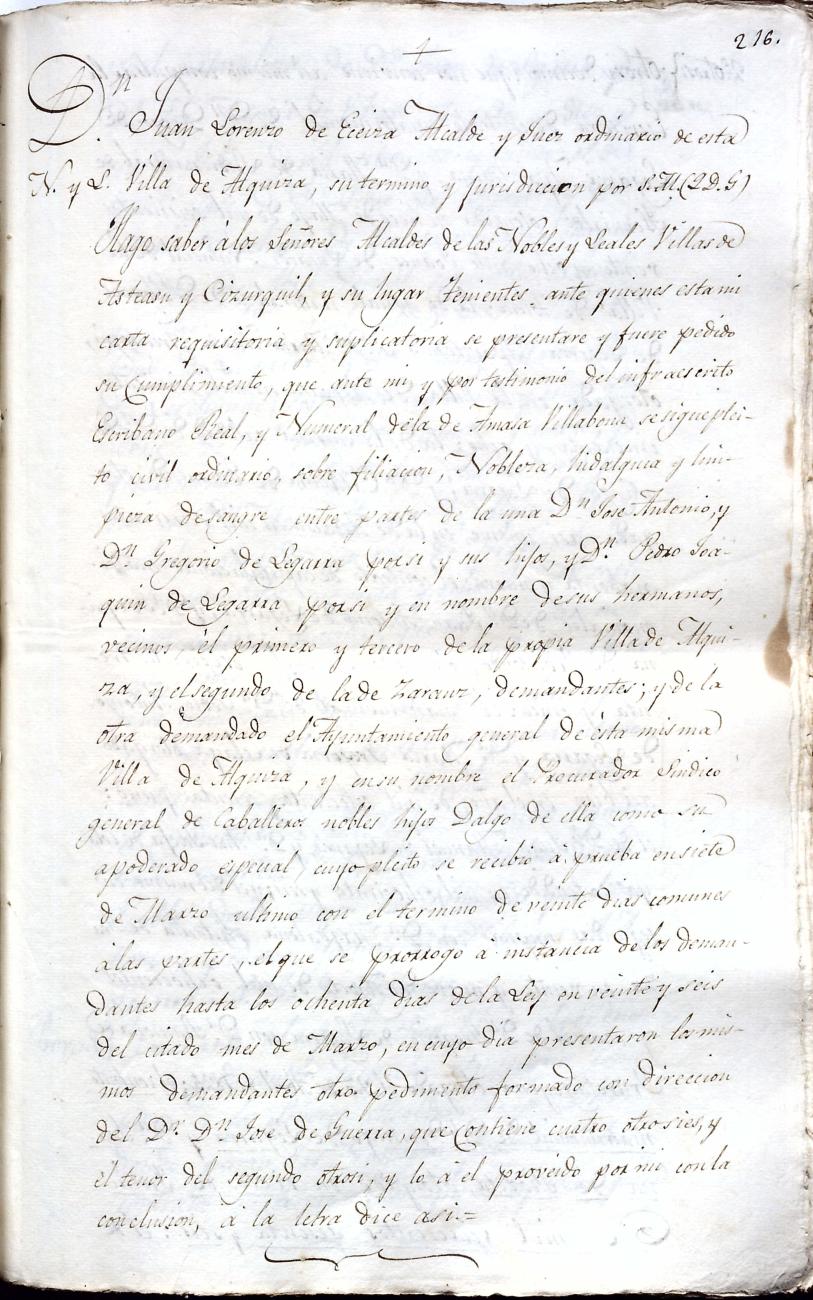 216.
Dn. Juan Lorenzo de Eceiza Alcalde y Juez ordinario de esta
N. y L. Villa de Alquiza, su termino y jurisdiccion por S.M.(Q.D.G)
Hago saber à los Señores Alcaldes de las Nobles y Leales Villas de
Asteasu y Cizurquil, y su lugar Tenientes ante quienes esta mi
carta requisitoria y suplicatoria se presentare y fuere pedido
su Cumplimiento, que ante mi, y por testimonio del infraescrito
Escribano Real, y Numeral dela de Amasa Villabona, se sigue plei-
to civil ordinario, sobre filiacion, Nobleza, hidalguia y lim-
pieza de sangre entre partes de la una Dn Jose Antonio, y
Dn. Gregorio de Legarra por si y sus hijos, y Dn. Pedro Joa-
quin de Legarra por si y en nombre de sus hermanos,
vecinos el primero y tercero de la propia Villa de Alqui-
za, y el segundo de la de Zarauz, demandantes; y de la
otra demandado el Ayuntamiento general de esta misma
Villa de Alquiza, y en su nombre el Procurador Sindico
general de Caballeros nobles hijos Dalgo de ella como su
apoderado especial, cuyo pleito se recibió à prueba en siete
de Marzo ultimo con el termino de veinte dias comunes
à las partes, el que se prorrogo à instancia de los deman-
dantes hasta los ochenta dias de la Ley en veinte y seis
del citado mes de Marzo, en cuyo dia presentaron los mis-
mos demandantes otro pedimento formado con direccion
del Dr. Dn. Jose de Guerra, que Contiene cuatro otrosies, y
el tenor del segundo otrosi, y lo à el proveido por mi con la
conclusion, à la letra dice asi.=